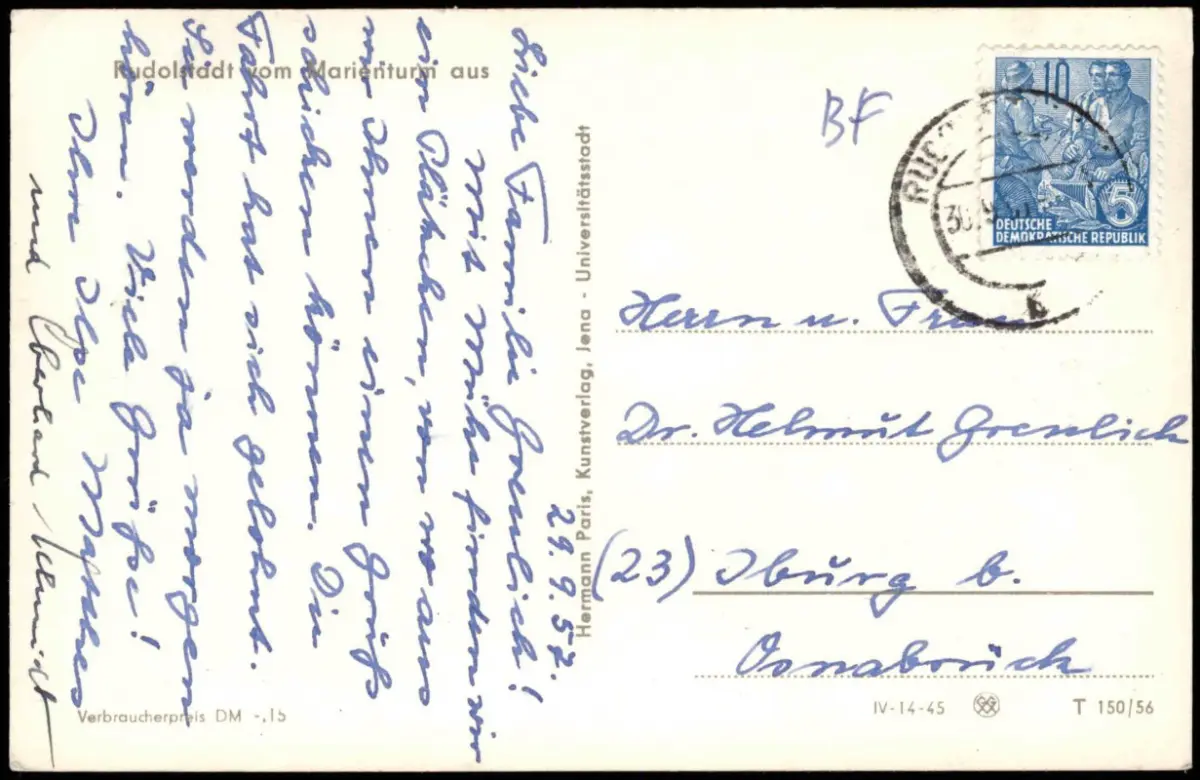 Rudolstadt vom Marienturm aus
29.9.57.
Liebe Familie Greulich!
Mit Mühe finden wir
ein Plätzchen, von wo aus
wir Ihnen einen Gruß
schicken können. Die
Fahrt hat sich gelohnt.
Sie werden ja morgen
hören. Viele Grüße!
Ihre Ilse Matthes
und Eberhard Schmidt
Hermann Paris, Kunstverlag, Jena - Universitätsstadt
BF
10
5
DEUTSCHE
DEMOKRATISCHE REPUBLIK
RUDO
30.9.57
b
Herrn u. Frau
Dr. Helmut Greulich
(23) Iburg b.
Osnabrück
Verbraucherpreis DM -,15
IV-14-45
T 150/56